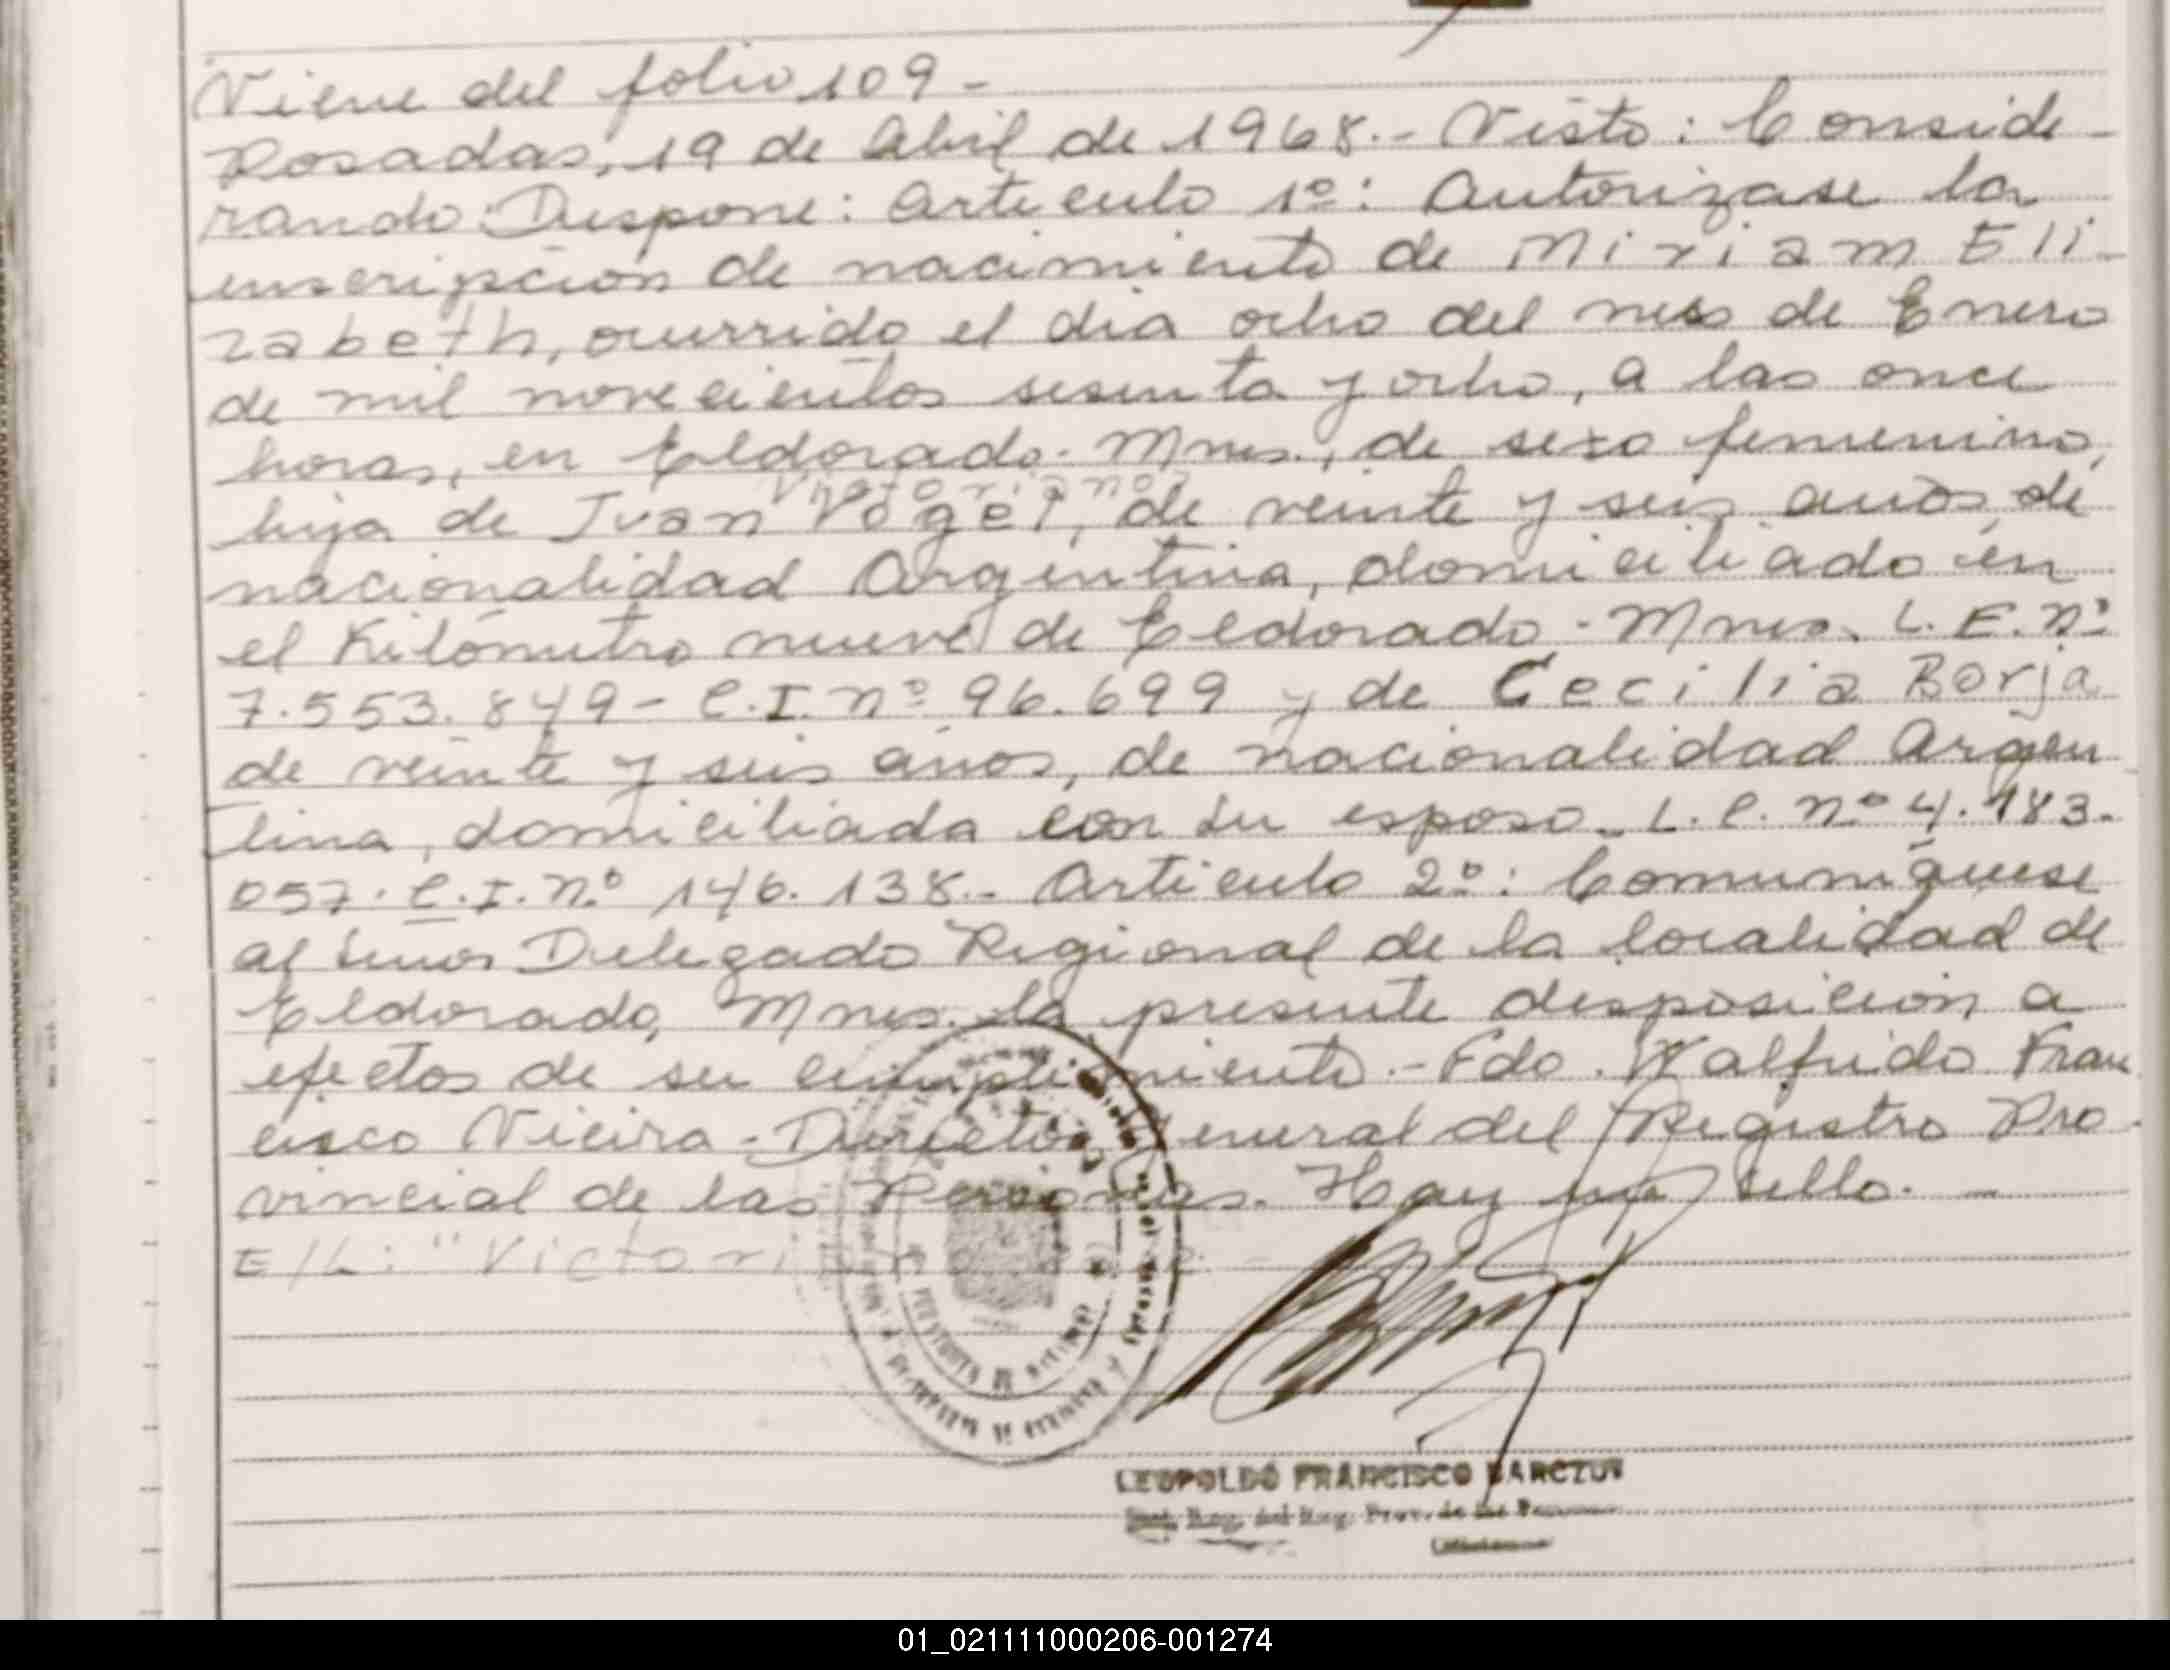 Viene del folio 109 -
Posadas, 19 de Abril de 1968.- Visto: Conside-
rando: Dispone: Articulo 1º: Autorizase la
inscripción de nacimiento de Miriam Eli-
zabeth, ocurrido el dia ocho del mes de Enero
de mil novecientos sesenta y ocho, a las once
horas, en Eldorado. Mnes., de sexo femenino,
Victoriano
hija de Juan Vogel, de veinte y seis años, de
nacionalidad Argentina, domiciliado en
el Kilómetro nueve de Eldorado - Mnes. L.E. Nº
7.553.849 - C.I. nº 96.699 y de Cecilia Borja
de veinte y seis años, de nacionalidad Argen
tina, domiciliada con su esposo - L.C. nº 4.183.
057. C.I. Nº 146.138.- Articulo 2º: Comuníquese
al Señor Delegado Regional de la localidad de
Eldorado, Mnes. la presente disposición a
efectos de su cumplimiento.- Fdo. Walfrido Fran
cisco Vieira - Director General del Registro Pro-
vincial de las Personas. Hay un sello. -
E/L: "Victoriano
LEOPOLDO FRANCISCO BARCZUK
Reg. del Reg. Prov. de las Personas
01_021111000206-001274